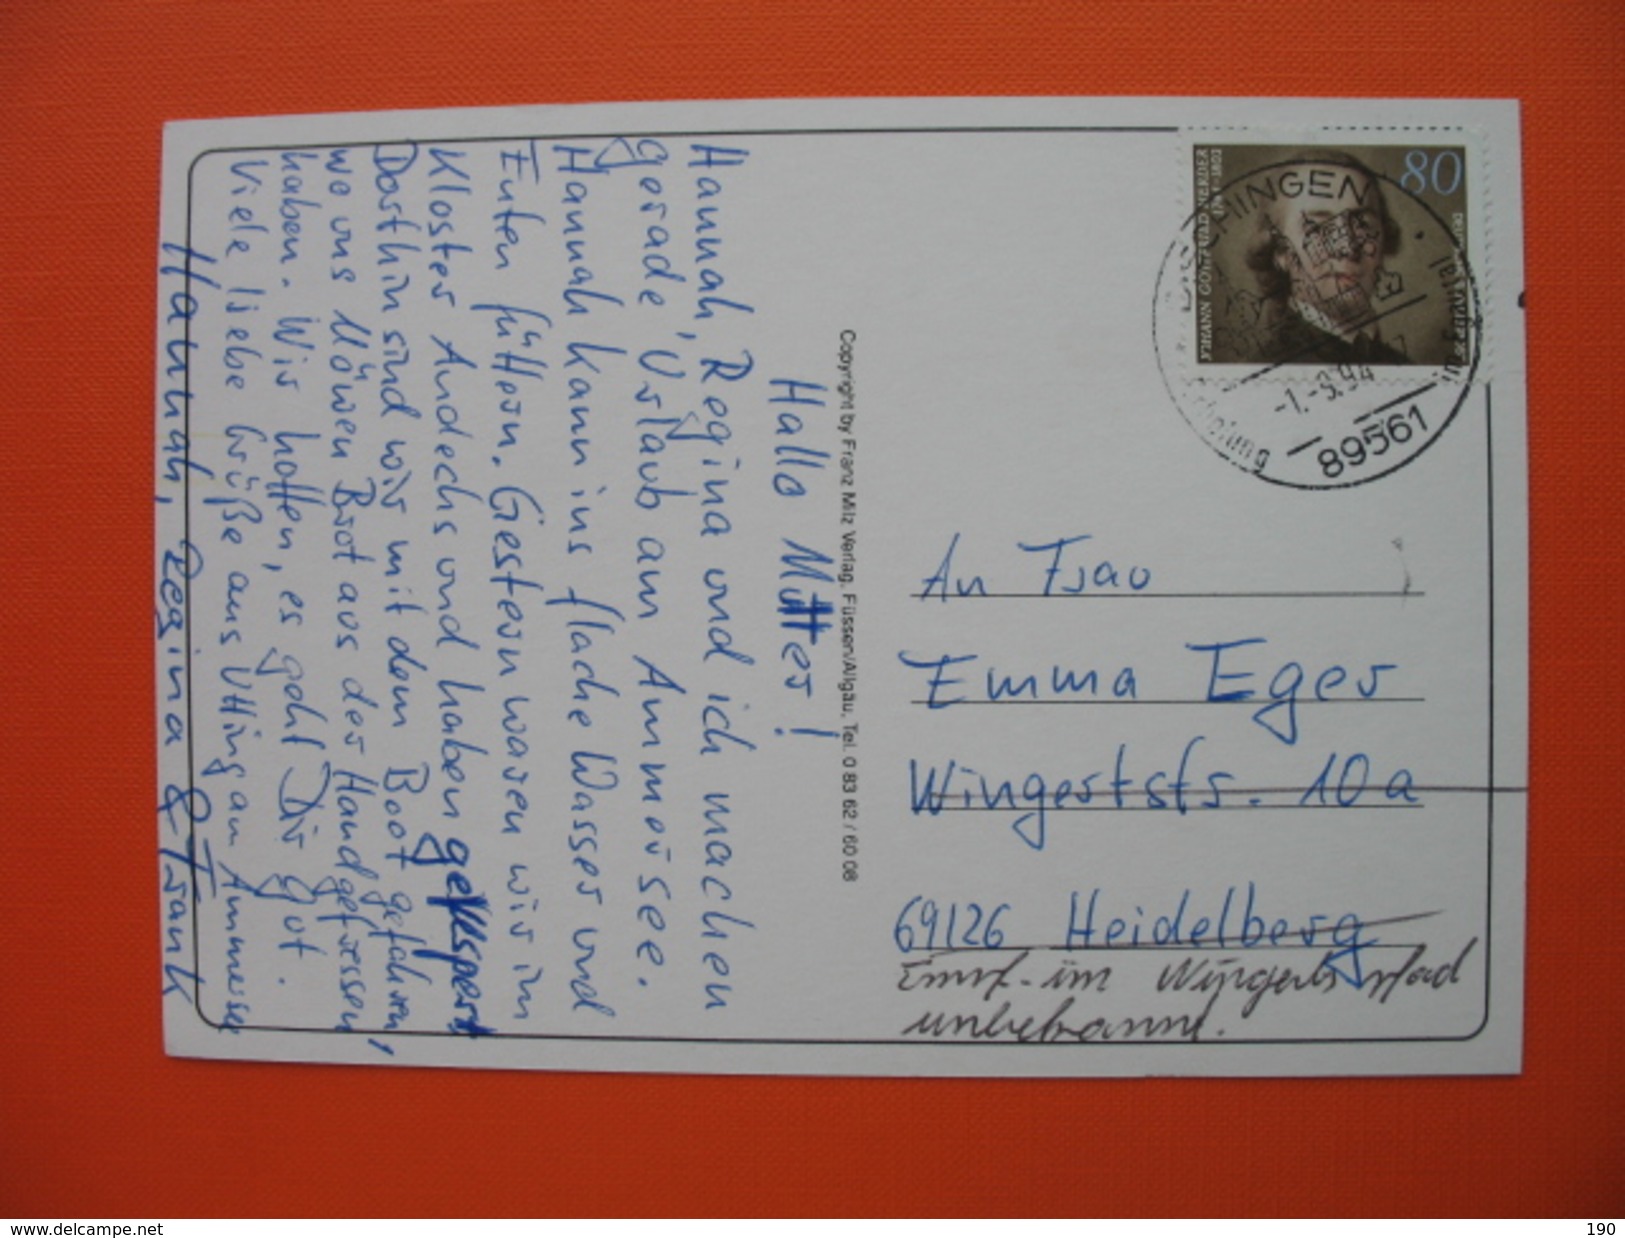 Hallo Mutter!
Hannah, Regina und ich machen
gerade Urlaub am Ammersee.
Hannah kann ins flache Wasser und
Enten füttern. Gestern waren wir im
Kloster Andechs und haben gevespert
Dorthin sind wir mit dem Boot gefahren,
wo uns Möwen Brot aus der Hand gefressen
haben. Wir hoffen, es geht Dir gut.
Viele liebe Grüße aus Utting am Ammersee
Hannah, Regina & Frank
Copyright by Franz Milz Verlag, Füssen/Allgäu, Tel. 0 83 62 / 60 08
80
JOHANN GOTTFRIED HERDER
1744-1803
DISCHINGEN
-1.-9.94
89561
An Frau
Emma Eger
Wingertstr. 10a
69126 Heidelberg
im Wingertspfad
unbekannt.
www.delcampe.net
190